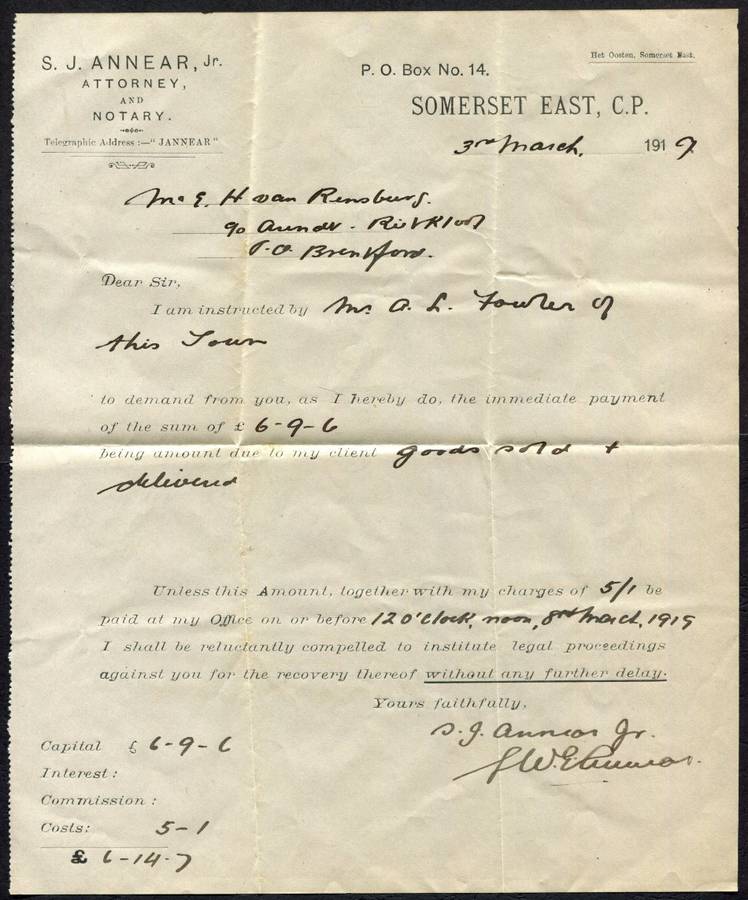 Het Oosten, Somerset East.
S. J. ANNEAR, Jr.
ATTORNEY,
AND
NOTARY.
Telegraphic Address :—" JANNEAR "
P. O. Box No. 14.
SOMERSET EAST, C.P.
3rd March, 1919
Mr E. H van Rensburg.
c/o Arundt - Rietkloof
P.O. Brentford.
Dear Sir,
I am instructed by Mr. A. L. Fowler of
this Town
to demand from you, as I hereby do, the immediate payment
of the sum of £ 6-9-6
being amount due to my client goods sold +
delivered
Unless this Amount, together with my charges of 5/1 be
paid at my Office on or before 12 O'clock, noon, 8th March, 1919
I shall be reluctantly compelled to institute legal proceedings
against you for the recovery thereof without any further delay.
Yours faithfully,
S. J. Annear Jr.
Capital £ 6-9-6
Interest :
Commission :
Costs: 5-1
£ 6-14-7